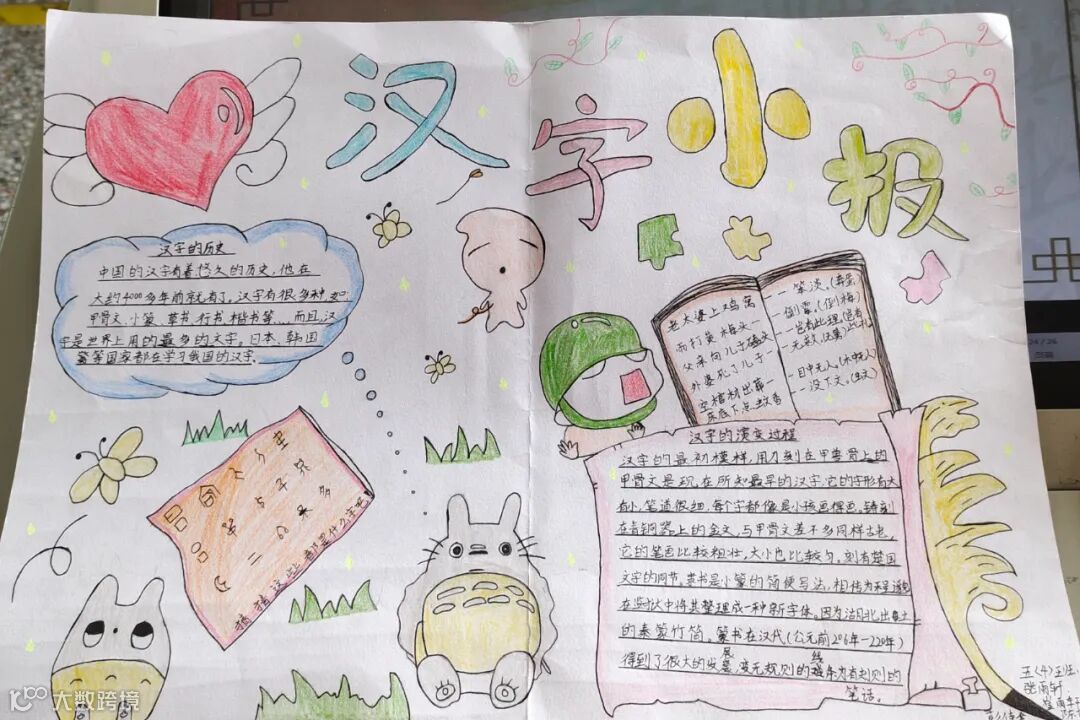 汉字小报
汉字的历史
中国的汉字有着悠久的历史,他在
大约4000多年前就有了。汉字有很多种,如:
甲骨文、小篆、草书、行书、楷书等...而且,汉
字是世界上用的最多的文字。日本、韩国
等国家都在学习我国的汉字。
猜猜这些都是什么字呢
老太婆上鸡窝
雨打黄梅头
父亲向儿子磕头
外婆死了儿子
空棺材出葬
床底下点蚊香
笨淡。(奔蛋)
倒霉。(倒梅)
岂有此理(岂有此礼)
无救(无舅)
目中无人。(木中无人)
没下文。(蚊)
汉字的演变过程
汉字的最初模样,用刀刻在甲要骨上的
甲骨文是现在所知最早的汉字,它的字形有大
有小,笔道很细,每个字都像是小孩画得画,铸刻
在青铜器上的金文,与甲骨文差不多同样古老,
它的笔画比较粗壮,大小也比较匀。刻有楚国
文字的铜节。隶书是小篆的简便写法,相传为
将其整理成一种新字体。因为湖北出土
的秦篆竹简。篆书在汉代(公元前206年-220年)
得到了很大的发展,变无规则的线条为有规则的
笔话。
五(4)班
张雨轩
大数跨境